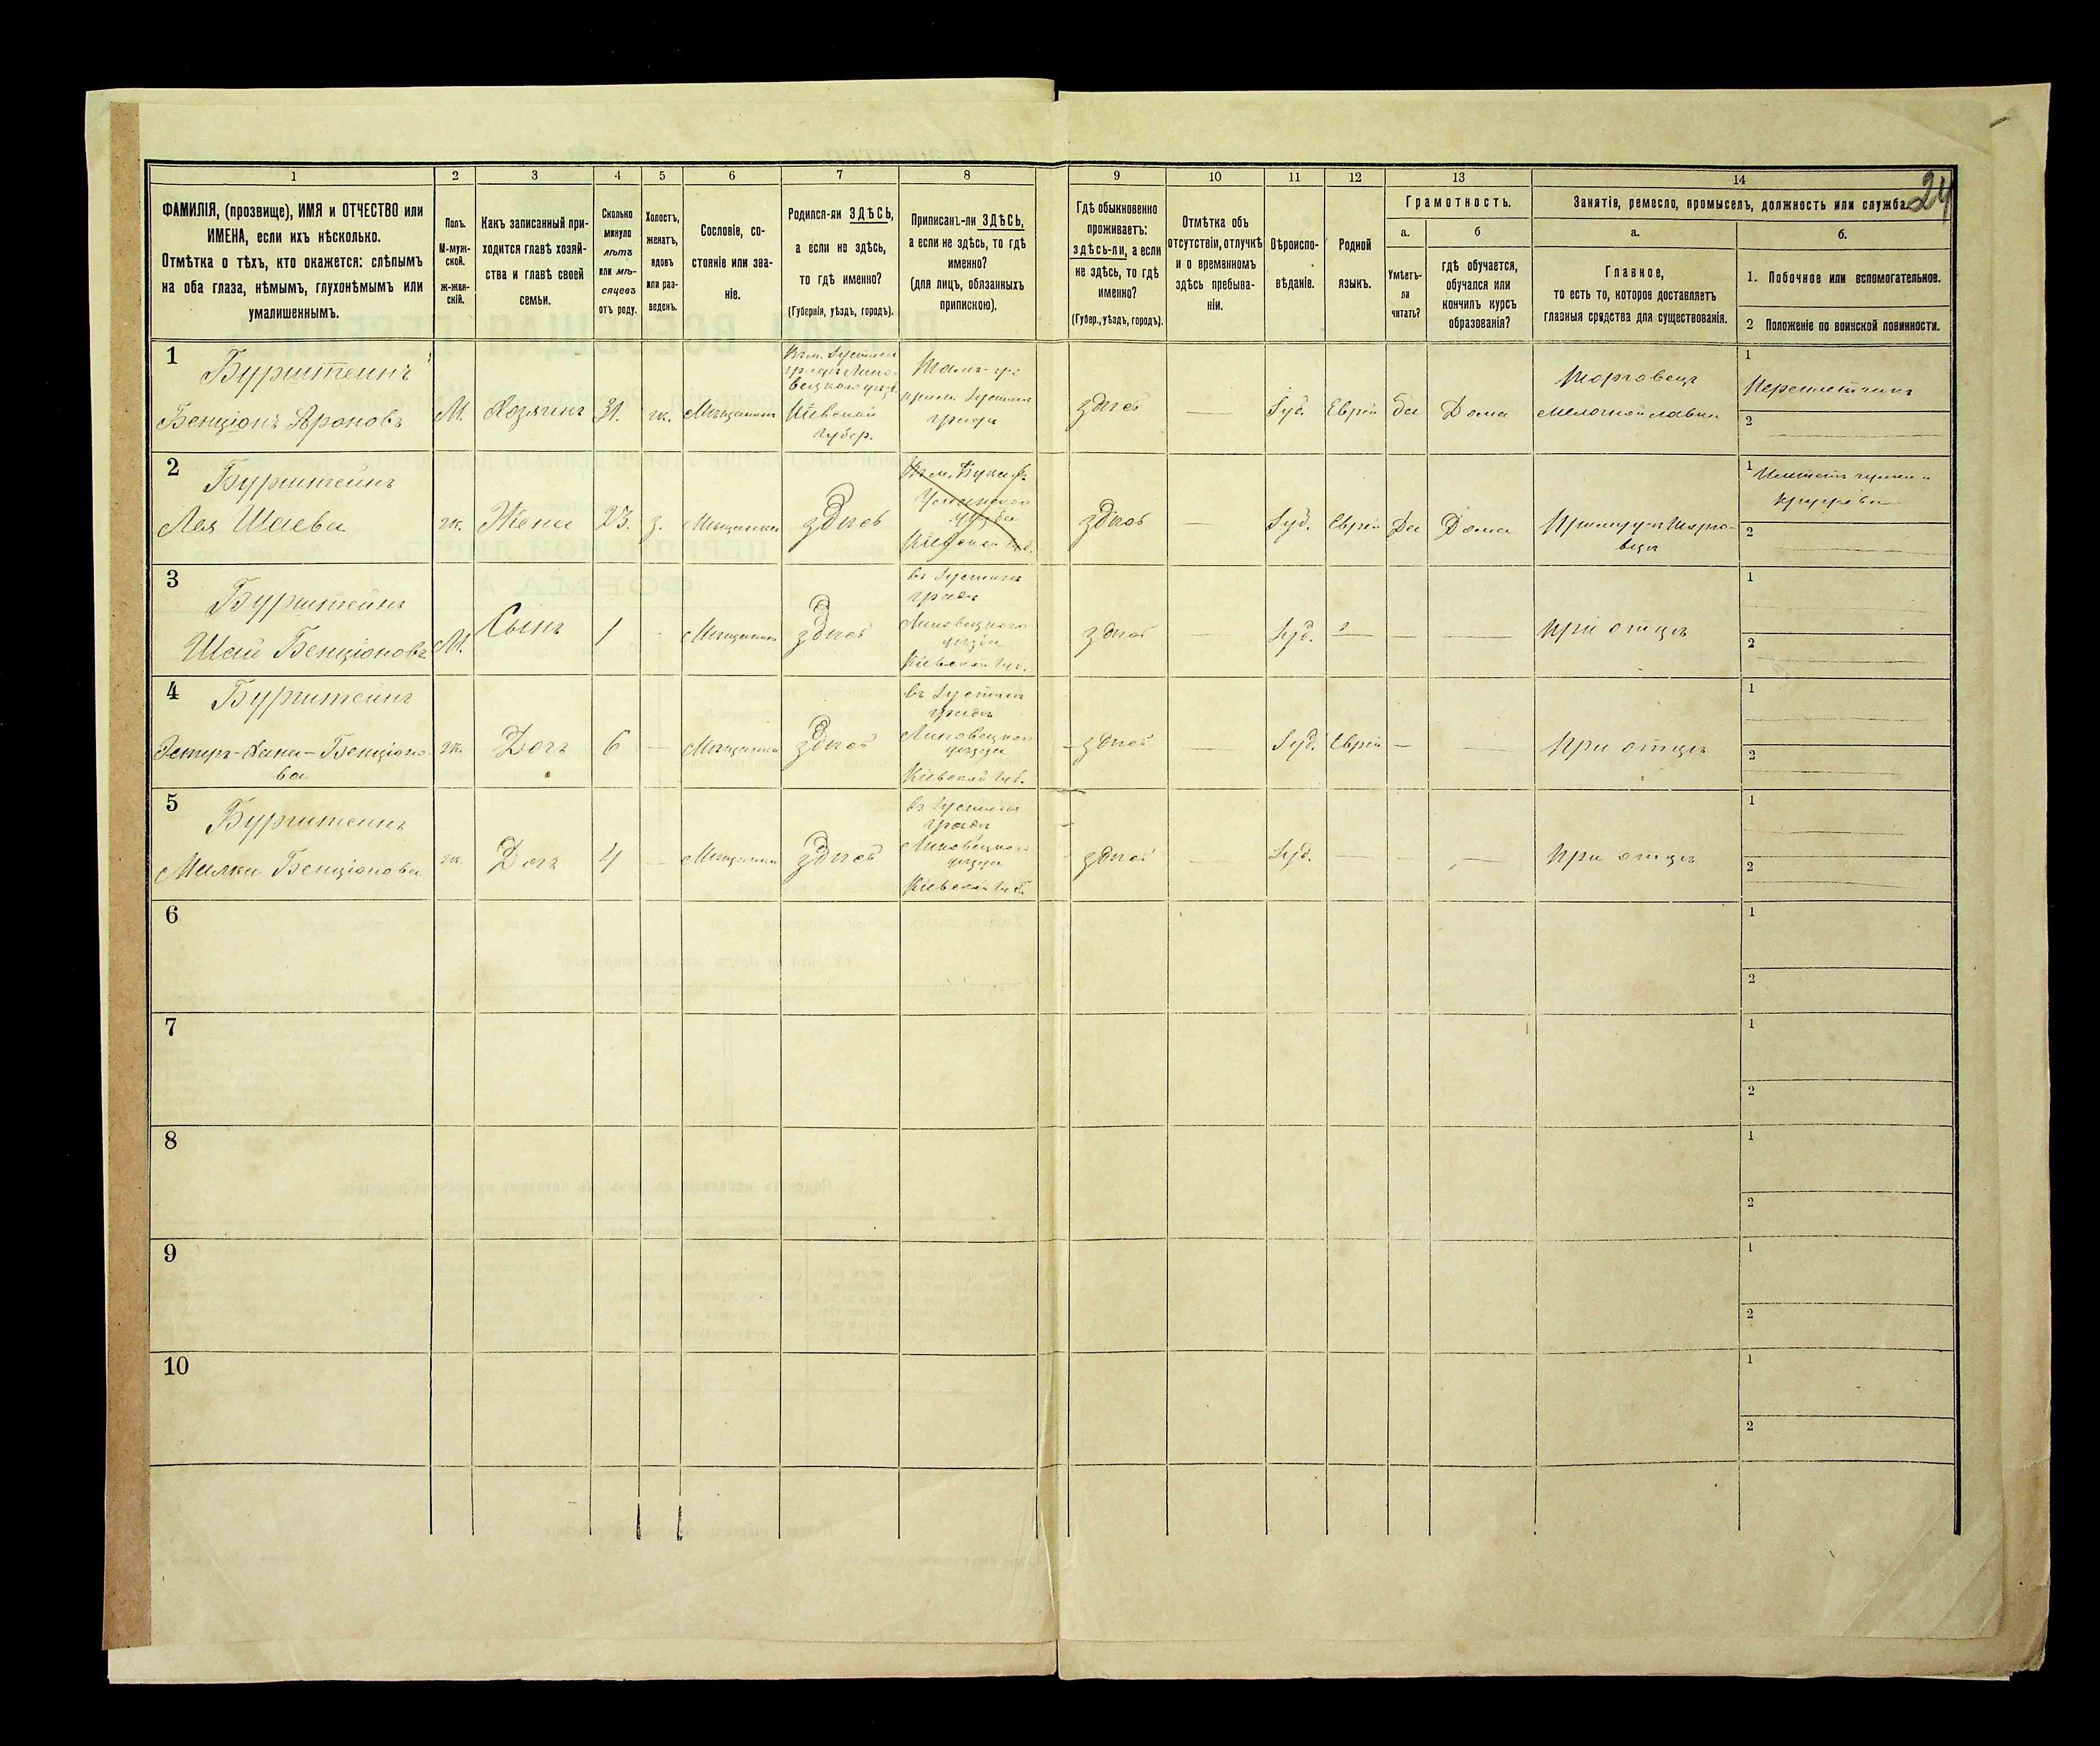 24
1 2 3 4 5 6 7 8 9 10 11 12 13 14
ФАМИЛІЯ, (прозвище), ИМЯ и ОТЧЕСТВО или
ИМЕНА, если ихъ нѣсколько.
Отмѣтка о тѣхъ, кто окажется: слѣпымъ
на оба глаза, нѣмымъ, глухонѣмымъ или
умалишеннымъ.
Полъ.
М-муж-
ской.
ж-жен-
скій.
Какъ записанный при-
ходится главѣ хозяй-
ства и главѣ своей
семьи.
Сколько
минуло
лѣтъ
или мѣ-
сяцевъ
отъ роду.
Холостъ,
женатъ,
вдовъ
или раз-
веденъ.
Сословіе, со-
стояніе или зва-
ніе.
Родился-ли ЗДѢСЬ,
а если не здѣсь,
то гдѣ именно?
(Губернія, уѣздъ, городъ).
Приписанъ-ли ЗДѢСЬ,
а если не здѣсь, то гдѣ
именно?
(для лицъ, обязанныхъ
припискою).
Гдѣ обыкновенно
проживаетъ:
здѣсь-ли, а если
не здѣсь, то гдѣ
именно?
(Губер., уѣздъ, городъ).
Отмѣтка объ
отсутствіи, отлучкѣ
и о временномъ
здѣсь пребыва-
ніи.
Вѣроиспо-
вѣданіе.
Родной
языкъ.
Грамотность.
а.
Умѣетъ-
ли
читать?
б
гдѣ обучается,
обучался или
кончилъ курсъ
образованія?
Занятіе, ремесло, промыселъ, должность или служба.
а.
Главное,
то есть то, которое доставляетъ
главныя средства для существованія.
б.
1. Побочное или вспомогательное.
2 Положеніе по воинской повинности.
1
Бурштейнъ
Бенціонъ Ароновъ
М.
Хозяинъ
31.
ж.
Мѣщанинъ
Кіевской
губер.
здѣсь
—
Іуд.
Еврей
да
Дома
Торговецъ
мелочной лавки
1
Переплетчикъ
2
2
Бурштейнъ
Лея Шаева
ж.
Жена
23.
з.
Мѣщанка
здѣсь
Кіевской губ.
здѣсь
—
Іуд.
Еврей
Да
Дома
1
2
3
Бурштейнъ
Шай Бенціоновъ
М.
Сынъ
1
-
Мѣщанинъ
здѣсь
Липовецкаго
уѣзда
Кіевской губ.
здѣсь
—
Іуд.
—
—
при отцѣ
1
2
4
Бурштейнъ
Эстеръ-Хана-Бенціоно-
ва
ж.
Дочь
6
—
Мѣщанка
здѣсь
Липовецкаго
уѣзда
Кіевской губ.
здѣсь
—
Іуд.
Еврей
—
—
при отцѣ
1
2
5
Бурштейнъ
Малка Бенціонова
ж.
Дочь
4
—
Мѣщанка
здѣсь
Липовецкаго
уѣзда
Кіевской губ.
здѣсь
—
Іуд.
—
—
—
при отцѣ
1
2
6
1
2
7
1
2
8
1
2
9
1
2
10
1
2